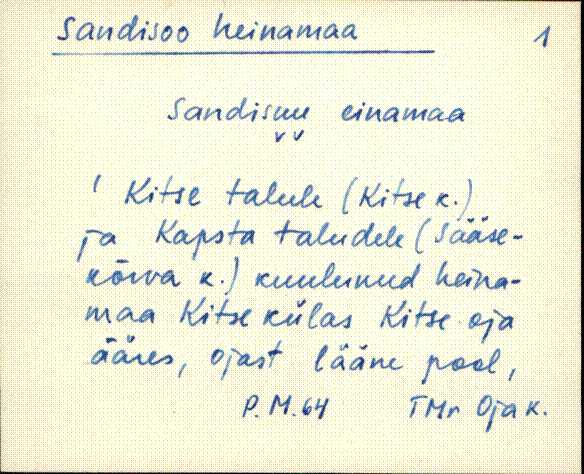 Sandisoo heinamaa 1
Sandisuu einamaa
' Kitse talule (Kitse k.)
ja Kapsta taludele (Sääse-
kõrva k.) kuulunud heina-
maa Kitse külas Kitse oja
ääres, ojast lääne pool,
P.M.64 TMr Oja k.